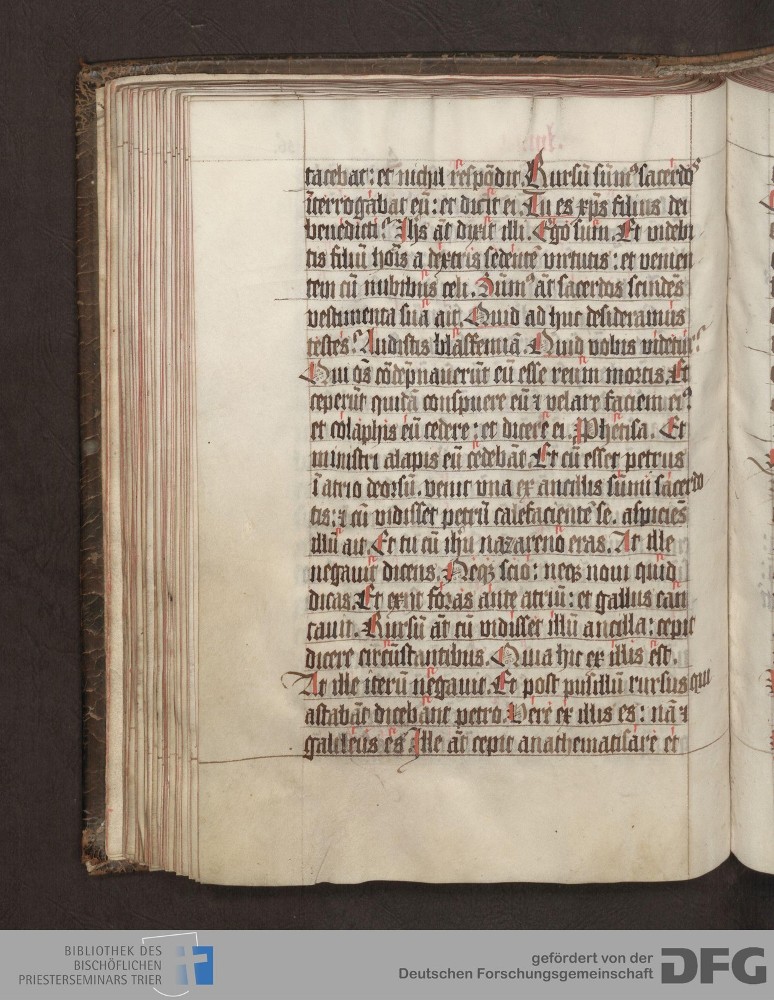 tacebat: et nichil respōdit. Rursū sūmꝰ sacerdos
īterrogabat eū: et dicit ei. Tu es xp̄s filius dei
benedicti? Ih̄s āt dixit illi. Ego sum. Et videbi
tis filiū hōis a dextris sedentē virtutis: et venien
tem cū nubibus celi. Sūmꝰ āt sacerdos scindēs
vestimenta sua ait. Quid ad huc desideramus
testes? Audistis blasfemiā. Quid vobis videtur?
Qui oēs cōdēpnauerūt eū esse reum mortis. Et
ceperūt quidā conspuere eū ⁊ velare faciem eiꝰ
et colaphis eū cedere: et dicere ei. Phetisa. Et
ministri alapis eū cedebāt. Et cū esset petrus
ī atrio deorsū. venit vna ex ancillis sūmi sacerdo
tis: ⁊ cū vidisset petrū calefacientē se. aspiciēs
illū ait. Et tu cū ihū nazareno eras. At ille
negauit dicens. Neqꝫ scio: neqꝫ noui quid
dicas. Et exiit foras ante atriū: et gallus can
tauit. Rursū āt cū vidisset illū ancilla: cepit
dicere circūstantibus. Quia hic ex illis est.
At ille iterū negauit. Et post pusillū rursus qui
astabāt dicebant petro. Vere ex illis es: nā ⁊
galileus es Ille āt cepit anathematisare et
BIBLIOTHEK DES
BISCHÖFLICHEN
PRIESTERSEMINARS TRIER
gefördert von der
Deutschen Forschungsgemeinschaft DFG